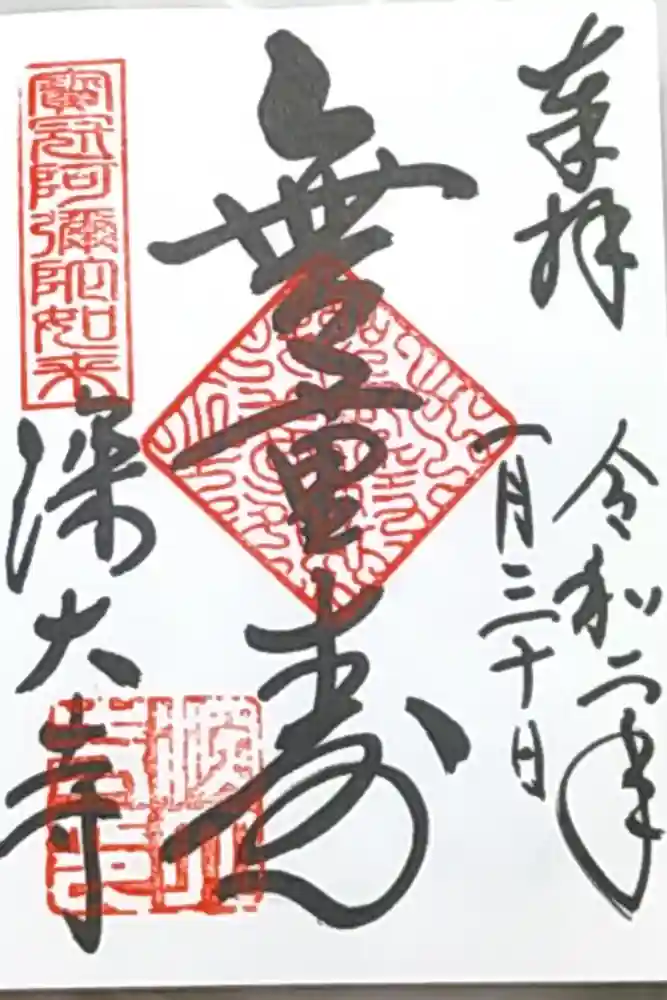 奉拝
令和二年
一月三十日
無量寿
寳冠阿彌陀如来
深大寺